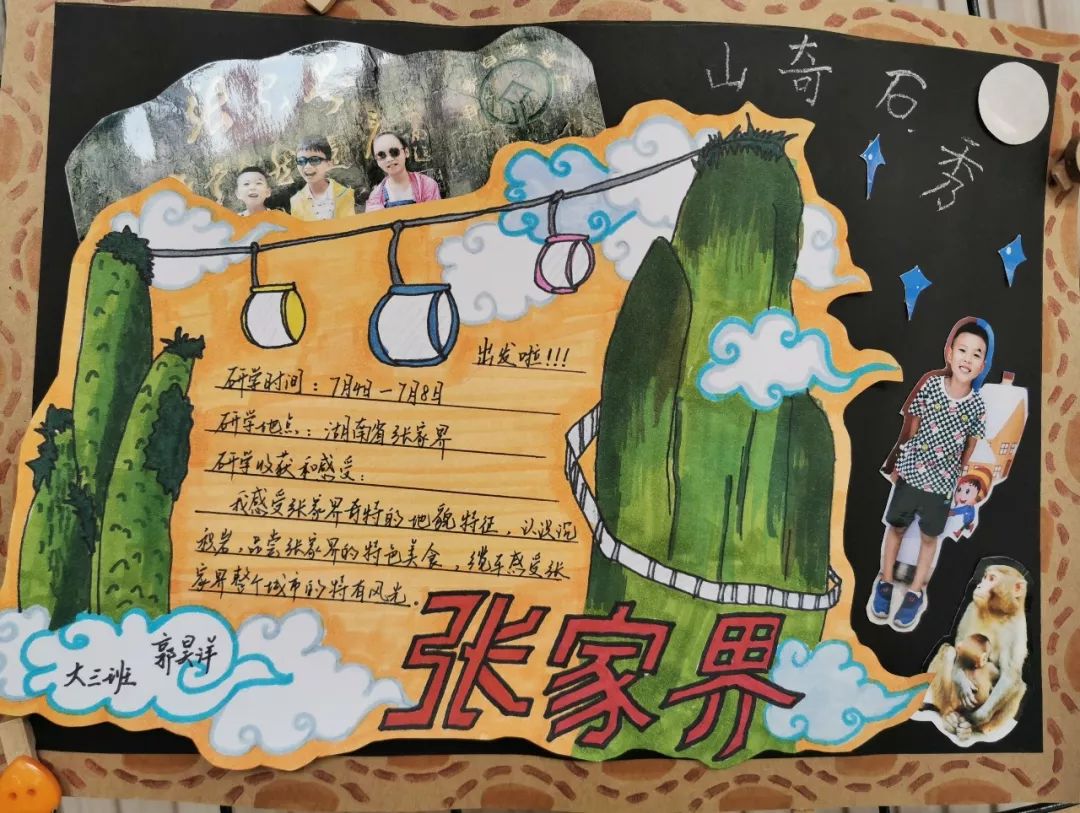 山奇石.秀
出发啦!!!
研学时间：7月4日—7月8日
研学地点：湖南省张家界
研学收获和感受：
我感受张家界奇特的地貌特征，认识沉
积岩，品尝张家界的特色美食，缆车感受张
家界整个城市的特有风光.
张家界
大三班 郭昊洋